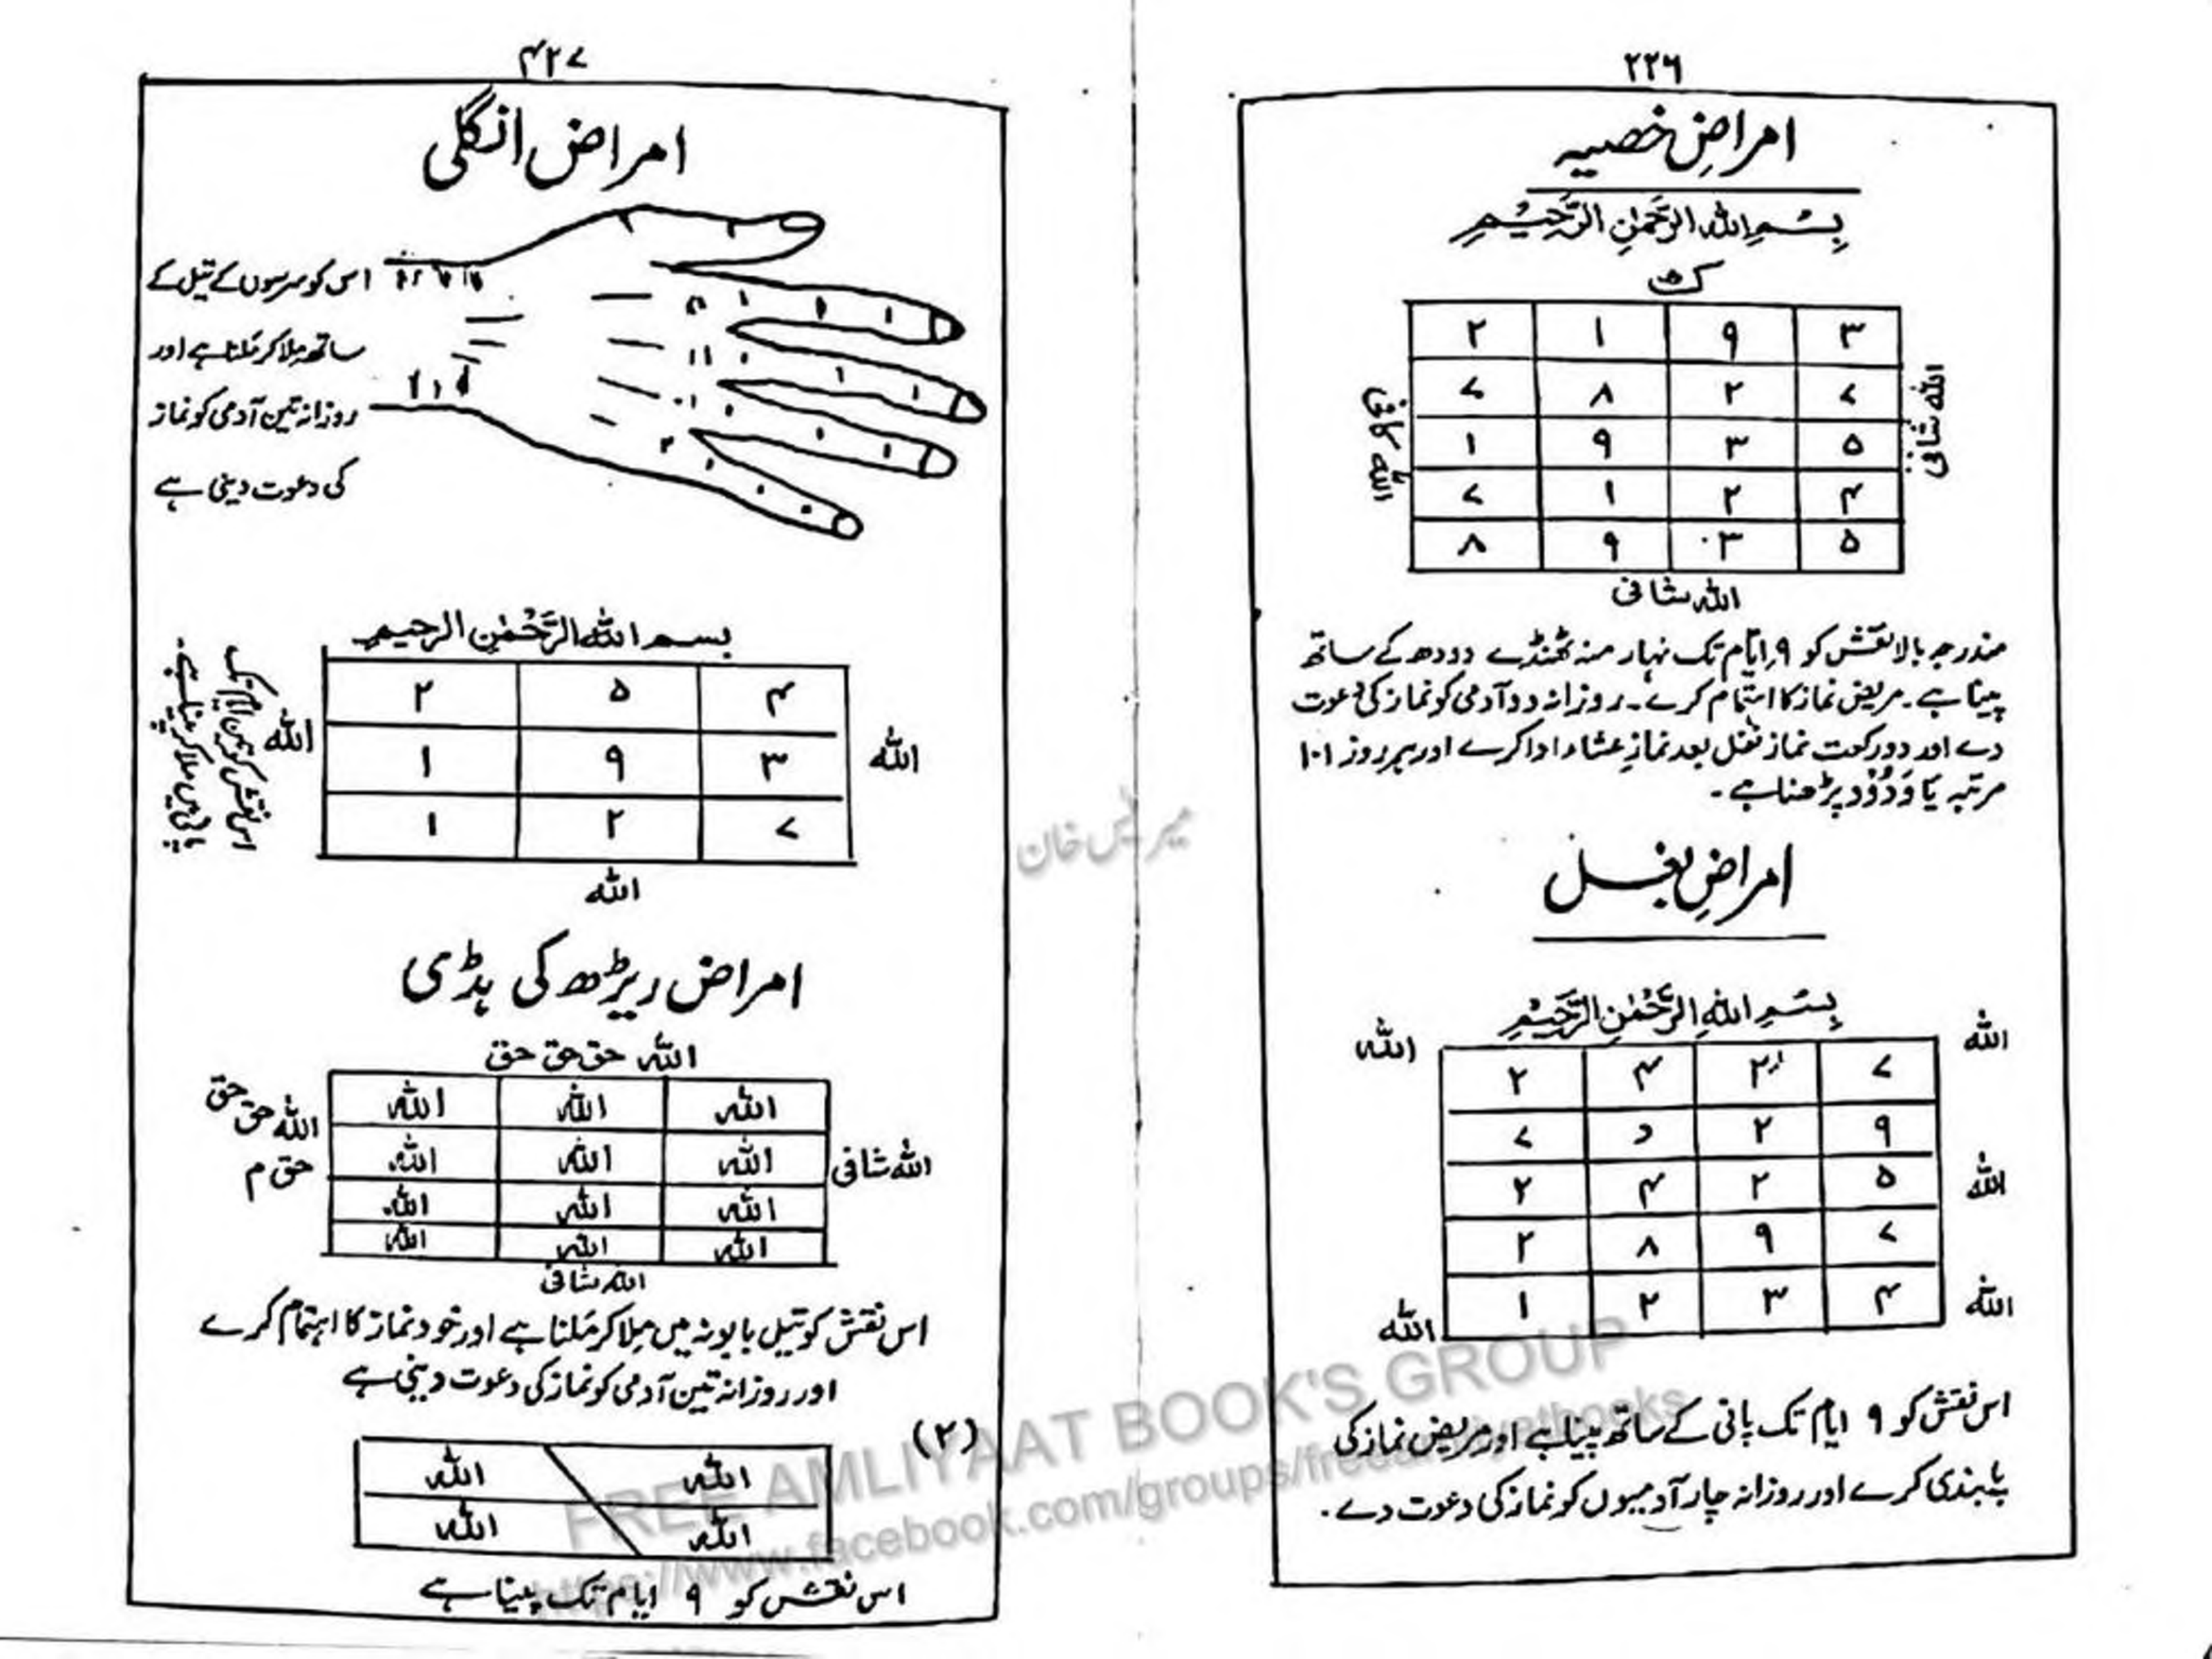 ۲۲۶
امراضِ خصیہ
بِسْمِ اللہِ الرَّحْمٰنِ الرَّحِیْمِ
۲ ۱ ۹ ۳
۷ ۸ ۲ ۷
۱ ۹ ۳ ۵
۷ ۱ ۲ ۴
۸ ۹ ۳ ۵
اللہ شافی
اللہ کافی
اللہ شافی
مندرجہ بالا نقش کو ۹ ایّام تک نہار منہ ٹھنڈے دودھ کے ساتھ
پینا ہے۔ مریض نماز کا اہتمام کرے۔ روزانہ دو آدمی کو نماز کی دعوت
دے اور دو رکعت نماز نفل بعد نمازِ عشاء ادا کرے اور ہر روز ۱۰۱
مرتبہ یَا وَدُوْدُ پڑھنا ہے۔
امراضِ بغل
بِسْمِ اللہِ الرَّحْمٰنِ الرَّحِیْمِ
اللہ اللہ
۲ ۴ ۲ ۷
۷ د ۲ ۹
۲ ۴ ۲ ۵
۲ ۸ ۹ ۷
۱ ۲ ۳ ۴
اللہ
اللہ اللہ
اس نقش کو ۹ ایام تک پانی کے ساتھ پینا ہے اور مریض نماز کی
پابندی کرے اور روزانہ چار آدمیوں کو نماز کی دعوت دے۔
۴۲۷
امراض انگلی
اس کو سرسوں کے تیل کے
ساتھ ملا کر مَلنا ہے اور
روزانہ تین آدمی کو نماز
کی دعوت دینی ہے
بسم اللہ الرَّحْمٰنِ الرحیم
۲ ۵ ۴
۱ ۹ ۳
۱ ۲ ۷
اللہ
اللہ
اللہ
اس نقش کو تین ایام تک
پانی میں ملا کر پینا ہے۔
امراض ریڑھ کی ہڈی
اللہ حق حق حق
اللہ اللہ اللہ
اللہ اللہ اللہ
اللہ اللہ اللہ
اللہ اللہ اللہ
اللہ شافی
اللہ حق حق
حق م
اللہ شافی
اس نقش کو تیل بابونہ میں ملا کر مَلنا ہے اور خود نماز کا اہتمام کرے
اور روزانہ تین آدمی کو نماز کی دعوت دینی ہے
(۲)
اللہ اللہ
اللہ اللہ
اس نقش کو ۹ ایام تک پینا ہے
FREE AMLIYAAT BOOK'S GROUP
https://www.facebook.com/groups/freeamliyatbooks